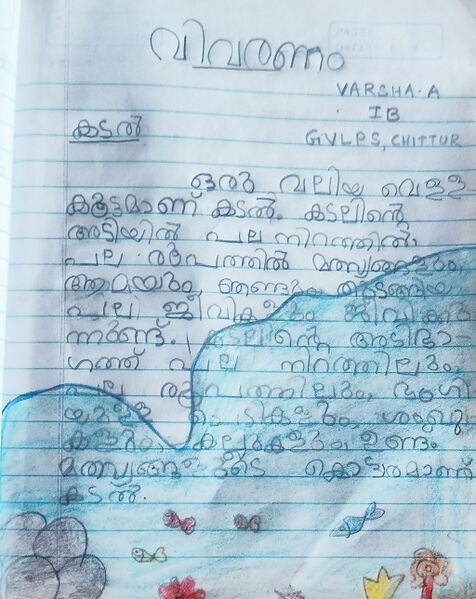 വിവരണം
VARSHA.A
IB
GVLPS, CHITTUR
കടൽ
ഒരു വലിയ വെള്ള
കൂട്ടമാണ് കടൽ. കടലിന്റെ
അടിയിൽ പല നിറത്തിൽ,
പല രൂപത്തിൽ മത്സ്യങ്ങളും,
ആമയും, ഞണ്ടും, തുടങ്ങിയ
പല ജീവികളും ജീവിക്കു
ന്നുണ്ട്. കടലിന്റെ അടിഭാ
ഗത്ത് പല നിറത്തിലും,
പല രൂപത്തിലും, ഭംഗി
യുള്ള ചെടികളും, ശംഖു
കളും, കല്ലുകളും, ഉണ്ടം
മത്സ്യങ്ങളുടെ കൊട്ടാരമാണ്
കടൽ.